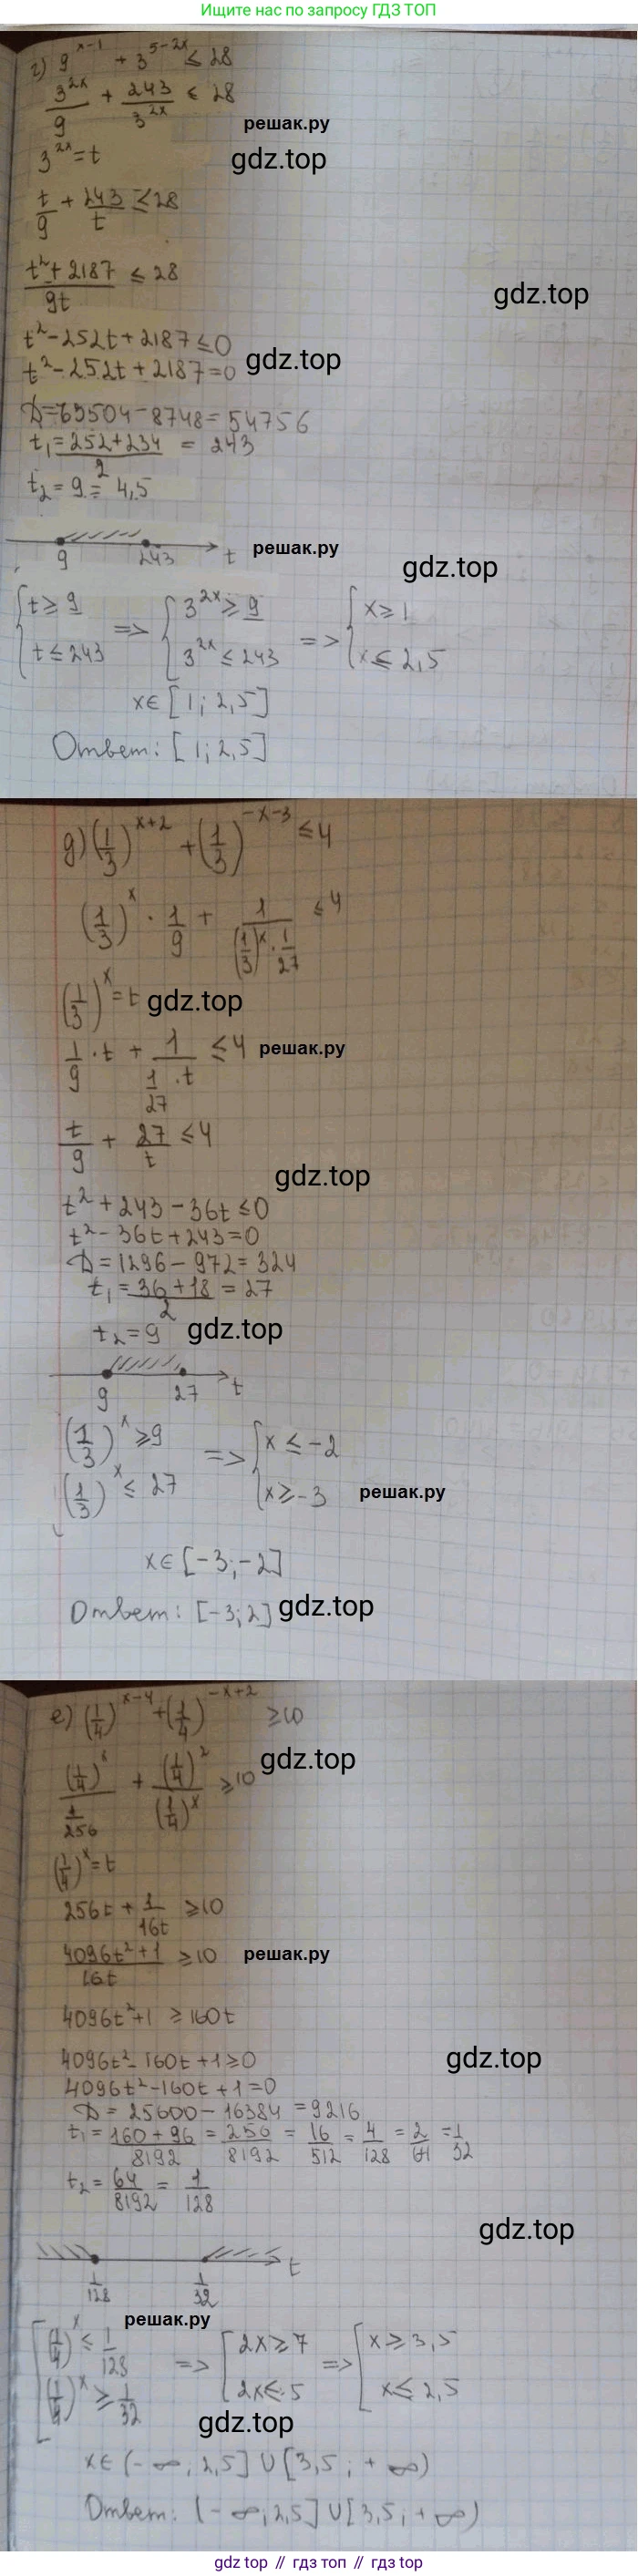 Ищите нас по запросу ГДЗ ТОП
г) 9^(x-1) + 3^(5-2x) ≤ 28
3^(2x)/9 + 243/3^(2x) ≤ 28
решак.ру
3^(2x) = t
gdz.top
t/9 + 243/t ≤ 28
(t² + 2187)/9t ≤ 28
gdz.top
t² - 252t + 2187 ≤ 0
t² - 252t + 2187 = 0
gdz.top
D = 63504 - 8748 = 54756
t₁ = (252 + 234)/2 = 243
t₂ = 9 = 4,5
9 243 t
решак.ру
gdz.top
{t ≥ 9 => {3^(2x) ≥ 9 => {x ≥ 1
{t ≤ 243 {3^(2x) ≤ 243 {x ≤ 2,5
x ∈ [1; 2,5]
Ответ: [1; 2,5]
д) (1/3)^(x+2) + (1/3)^(-x-3) ≤ 4
(1/3)^x · 1/9 + 1/((1/3)^x · 1/27) ≤ 4
(1/3)^x = t
gdz.top
1/9 · t + 1/(1/27 · t) ≤ 4
решак.ру
t/9 + 27/t ≤ 4
gdz.top
t² + 243 - 36t ≤ 0
t² - 36t + 243 = 0
D = 1296 - 972 = 324
t₁ = (36 + 18)/2 = 27
t₂ = 9
gdz.top
9 27 t
{(1/3)^x ≥ 9 => {x ≤ -2
{(1/3)^x ≤ 27 {x ≥ -3
решак.ру
x ∈ [-3; -2]
Ответ: [-3; 2]
gdz.top
е) (1/4)^(x-4) + (1/4)^(-x+2) ≥ 10
gdz.top
(1/4)^x/(1/256) + (1/4)²/(1/4)^x ≥ 10
(1/4)^x = t
256t + 1/16t ≥ 10
(4096t² + 1)/16t ≥ 10
решак.ру
4096t² + 1 ≥ 160t
4096t² - 160t + 1 ≥ 0
gdz.top
4096t² - 160t + 1 = 0
D = 25600 - 16384 = 9216
t₁ = (160 + 96)/8192 = 256/8192 = 16/512 = 4/128 = 2/64 = 1/32
t₂ = 64/8192 = 1/128
gdz.top
1/128 1/32 t
решак.ру
[(1/4)^x ≤ 1/128 => [2x ≥ 7 => [x ≥ 3,5
[(1/4)^x ≥ 1/32 [2x ≤ 5 [x ≤ 2,5
gdz.top
x ∈ (-∞; 2,5] ∪ [3,5; +∞)
Ответ: (-∞; 2,5] ∪ [3,5; +∞)
gdz top // гдз топ // gdz top